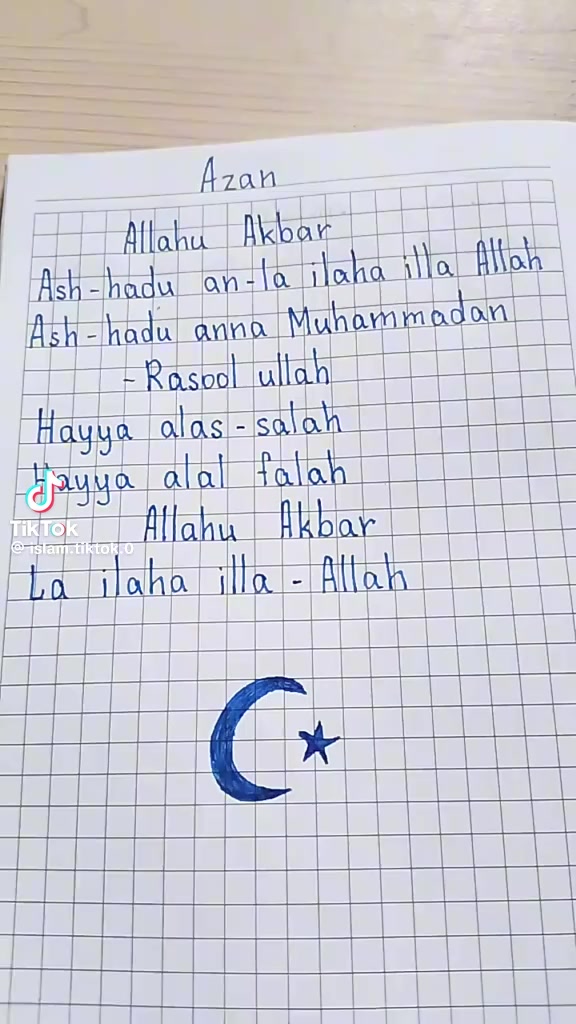 Azan
Allahu Akbar
Ash-hadu an-la ilaha illa Allah
Ash-hadu anna Muhammadan
-Rasool ullah
Hayya alas-salah
Hayya alal falah
Allahu Akbar
TikTok
@-islam.tiktok.0
La ilaha illa - Allah